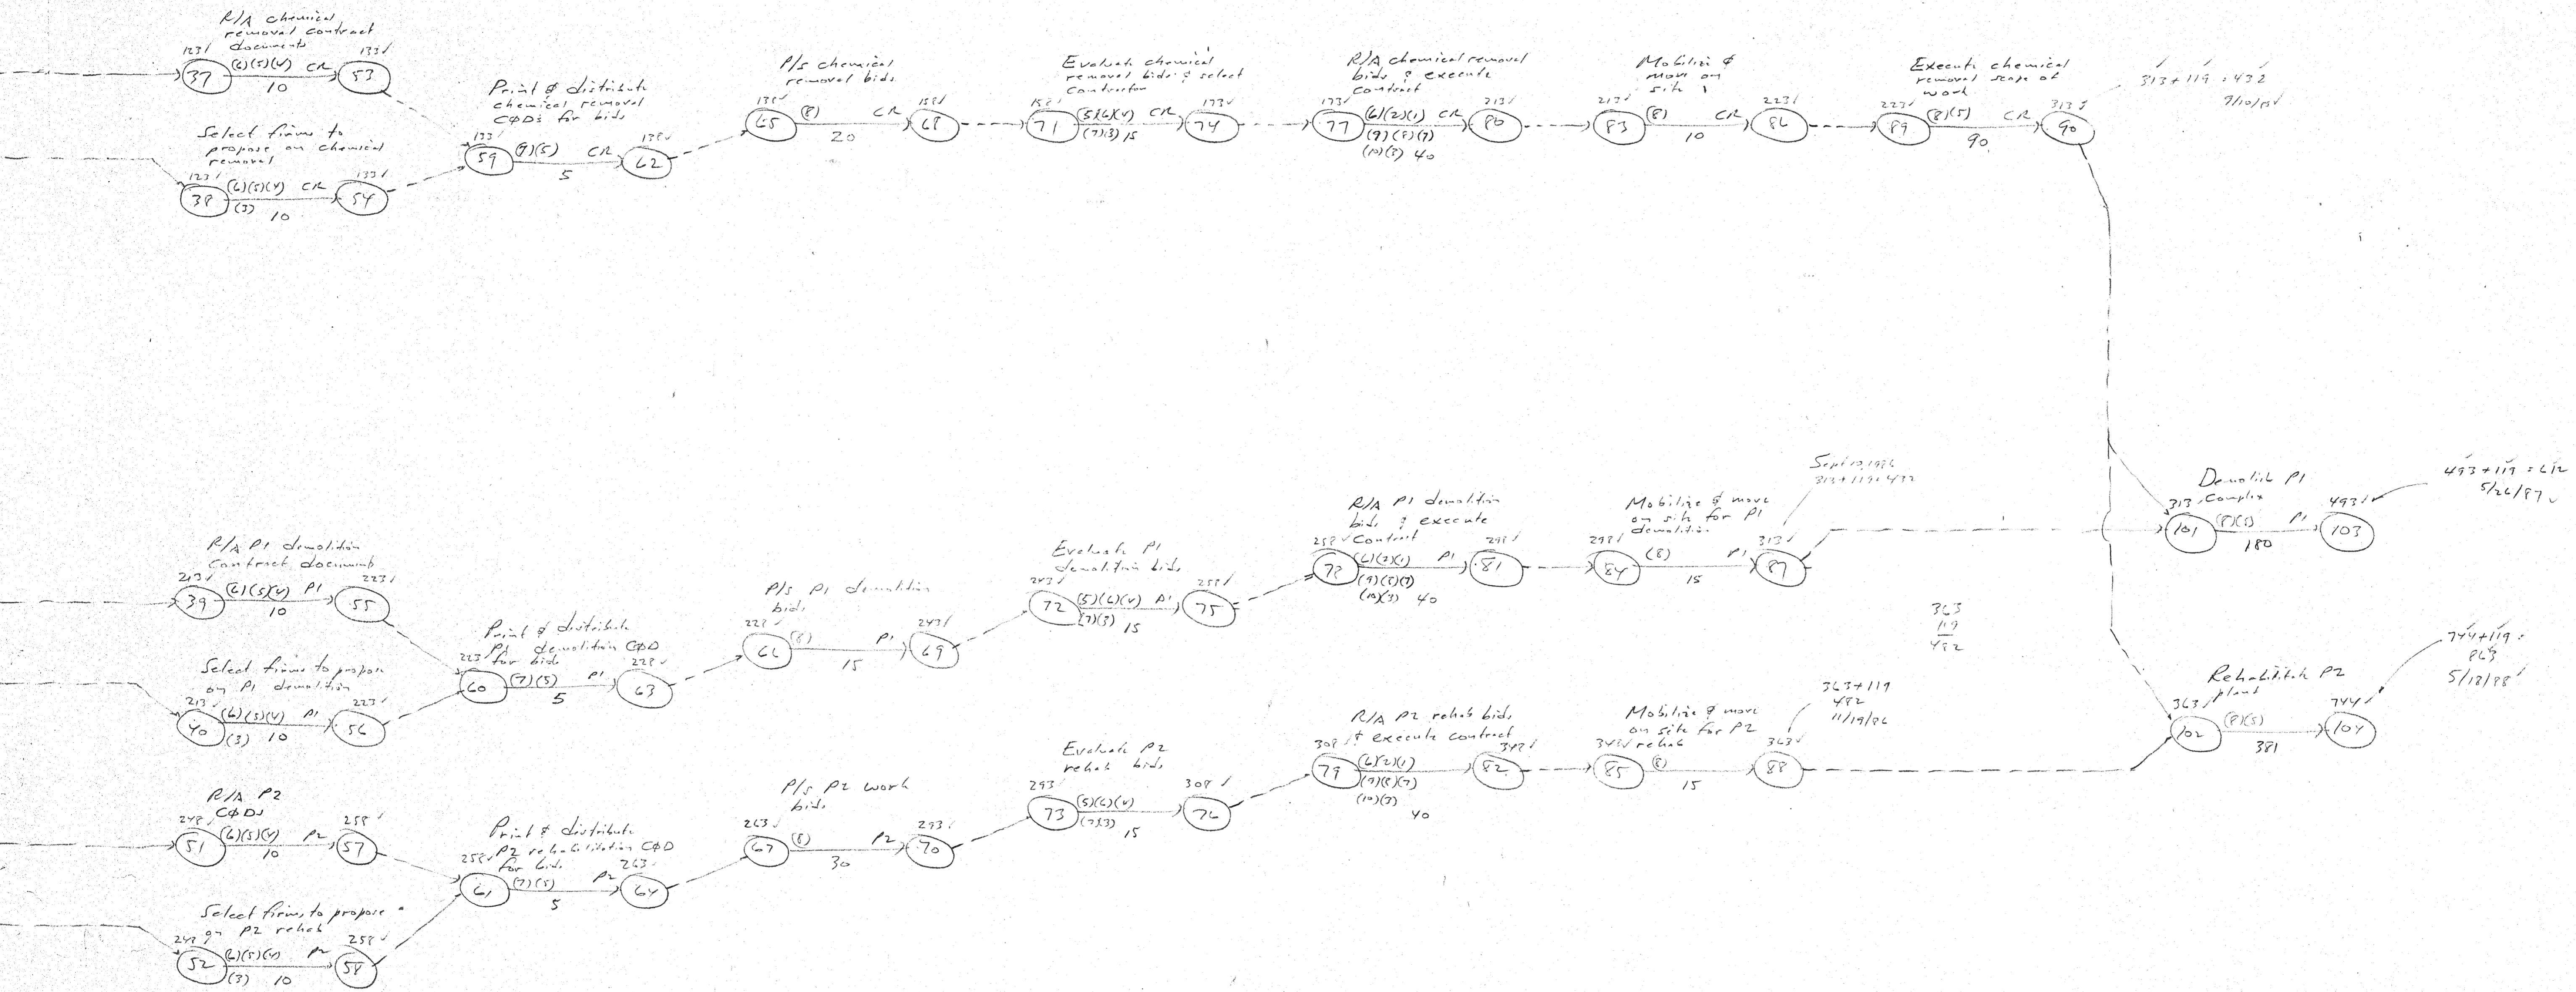 R/A chemical
removal contract
documents
123✓
133✓
37
(6)(5)(4) CR
53
10
Select firms to
propose on chemical
removal
123✓
133✓
38
(6)(5)(4) CR
54
(3) 10
Print & distribute
chemical removal
CØDs for bids
133
138✓
59
(7)(5) CR
62
5
P/s chemical
removal bids
138✓
158✓
65
(8) CR
68
20
Evaluate chemical
removal bids & select
contractor
158✓
173✓
71
(5)(6)(4) CR
74
(7)(3) 15
R/A chemical removal
bids & execute
contract
173✓
213✓
77
(6)(2)(1) CR
80
(9)(8)(7)
(10)(3) 40
Mobilize &
move on
site
213✓
223✓
83
(8) CR
86
10
Execute chemical
removal scope of
work
223✓
313✓
89
(8)(5) CR
90
90
313+119=432
R/A P1 demolition
contract documents
213✓
223✓
39
(6)(5)(4) P1
55
10
Select firms to propose
on P1 demolition
213✓
223✓
40
(6)(5)(4) P1
56
(3) 10
Print & distribute
P1 demolition CØD
for bids
223
228✓
60
(7)(5) P1
63
5
P/s P1 demolition
bids
228✓
243✓
66
(8) P1
69
15
Evaluate P1
demolition bids
243✓
258✓
72
(5)(6)(4) P1
75
(7)(3) 15
R/A P1 demolition
bids & execute
contract
258✓
298✓
78
(6)(2)(1) P1
81
(9)(8)(7)
(10)(3) 40
Mobilize & move
on site for P1
demolition
298✓
313✓
84
(8) P1
87
15
Sept 10, 1986
313+119=432
Demolish P1
Complex
313✓
493✓
101
(8)(5) P1
103
180
493+119=612
5/26/87✓
R/A P2
CØDs
248✓
258✓
51
(6)(5)(4) P2
57
10
Select firms to propose
on P2 rehab
248
258✓
52
(6)(5)(4) P2
58
(3) 10
Print & distribute
P2 rehabilitation CØD
for bids
258✓
263✓
61
(7)(5) P2
64
5
P/s P2 work
bids
263✓
293✓
67
(8) P2
70
30
Evaluate P2
rehab bids
293✓
308✓
73
(5)(6)(4)
76
(7)(3) 15
R/A P2 rehab bids
& execute contract
308✓
348✓
79
(6)(2)(1)
82
(9)(8)(7)
(10)(3) 40
Mobilize & move
on site for P2
rehab
348✓
363✓
85
(8)
88
15
363
119
482
363+119
482
11/19/86
Rehabilitate P2
plant
363✓
744✓
102
(8)(5)
104
381
744+119=
863
5/18/88✓